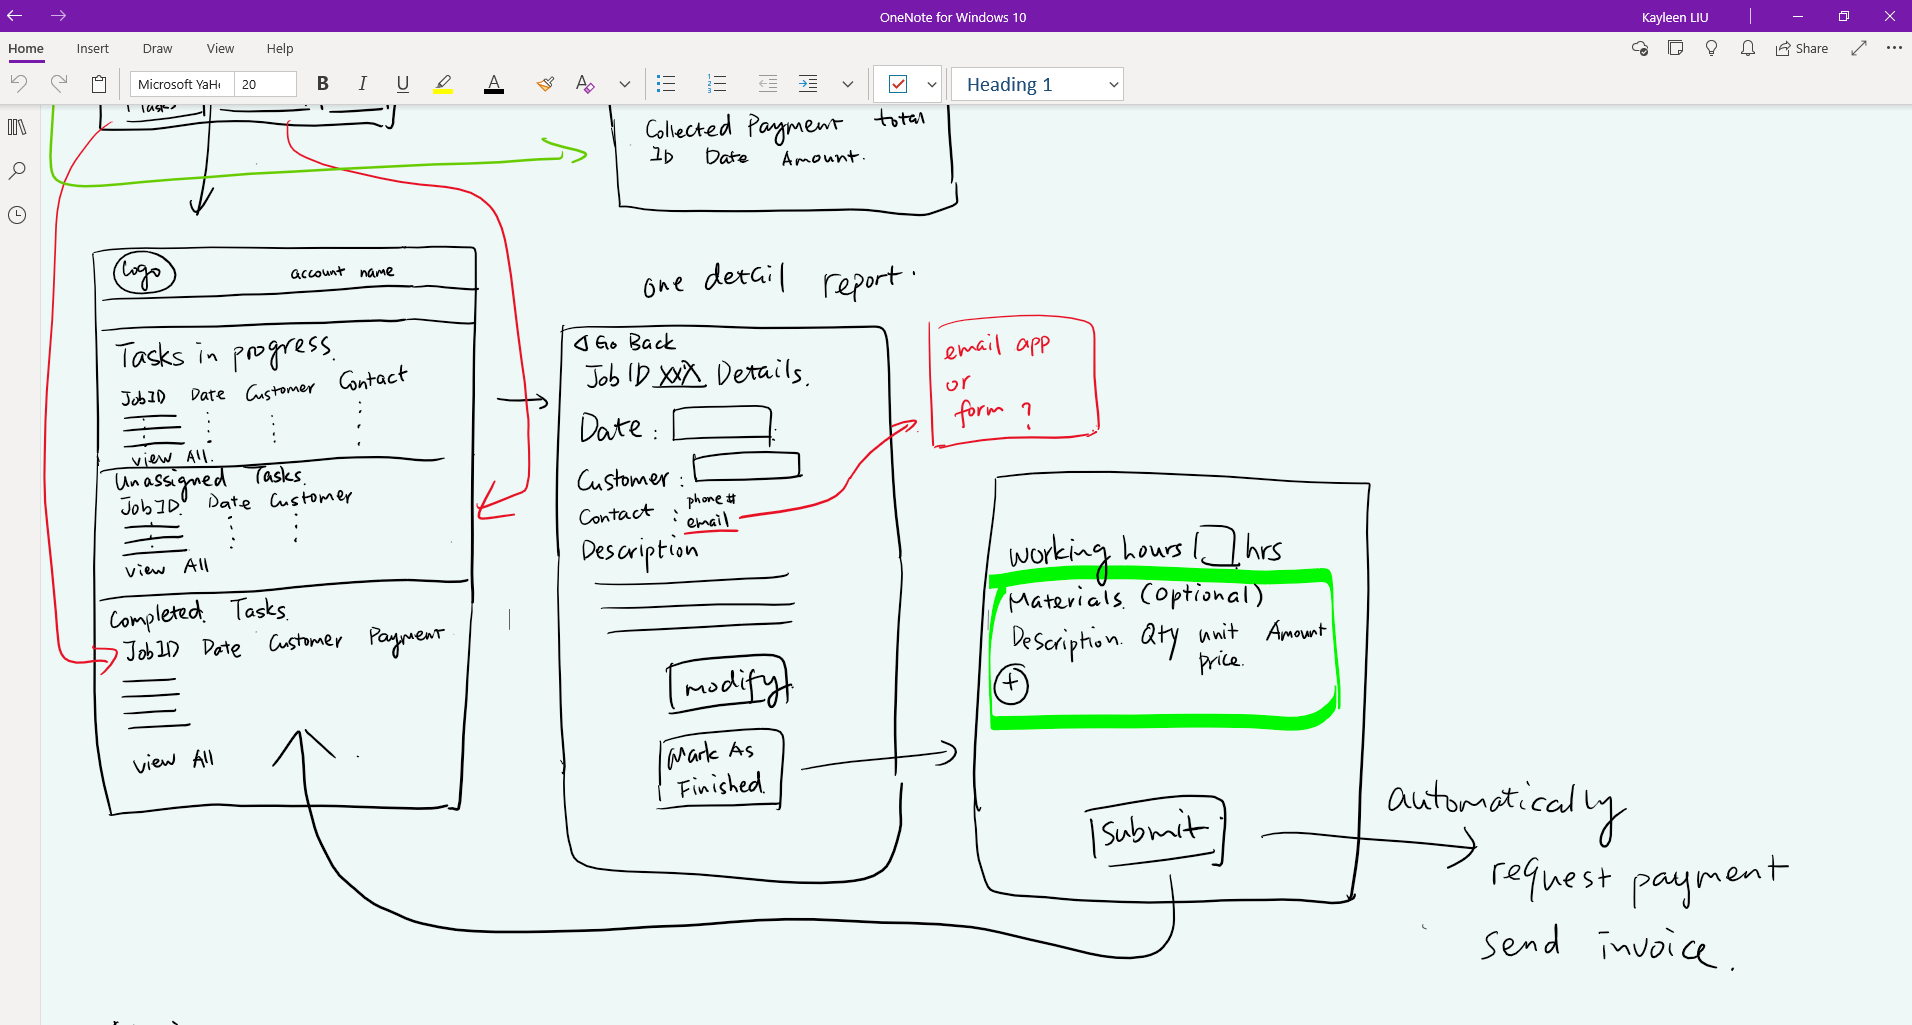 OneNote for Windows 10
Kayleen LIU
Home Insert Draw View Help
Share
Microsoft YaHe 20
B I U A
Heading 1
Tasks
Collected Payment total
ID Date Amount.
Logo account name
Tasks in progress.
JobID Date Customer Contact
view All.
Unassigned Tasks.
JobID. Date Customer
view All
Completed. Tasks.
JobID Date Customer Payment
view All
one detail report.
Go Back
Job ID XXX Details.
Date :
Customer :
Contact : phone #
email
Description
modify
Mark As
Finished.
email app
or
form ?
working hours hrs
Materials. (optional)
Description. Qty unit Amount
price.
+
Submit
automatically
request payment
send invoice.